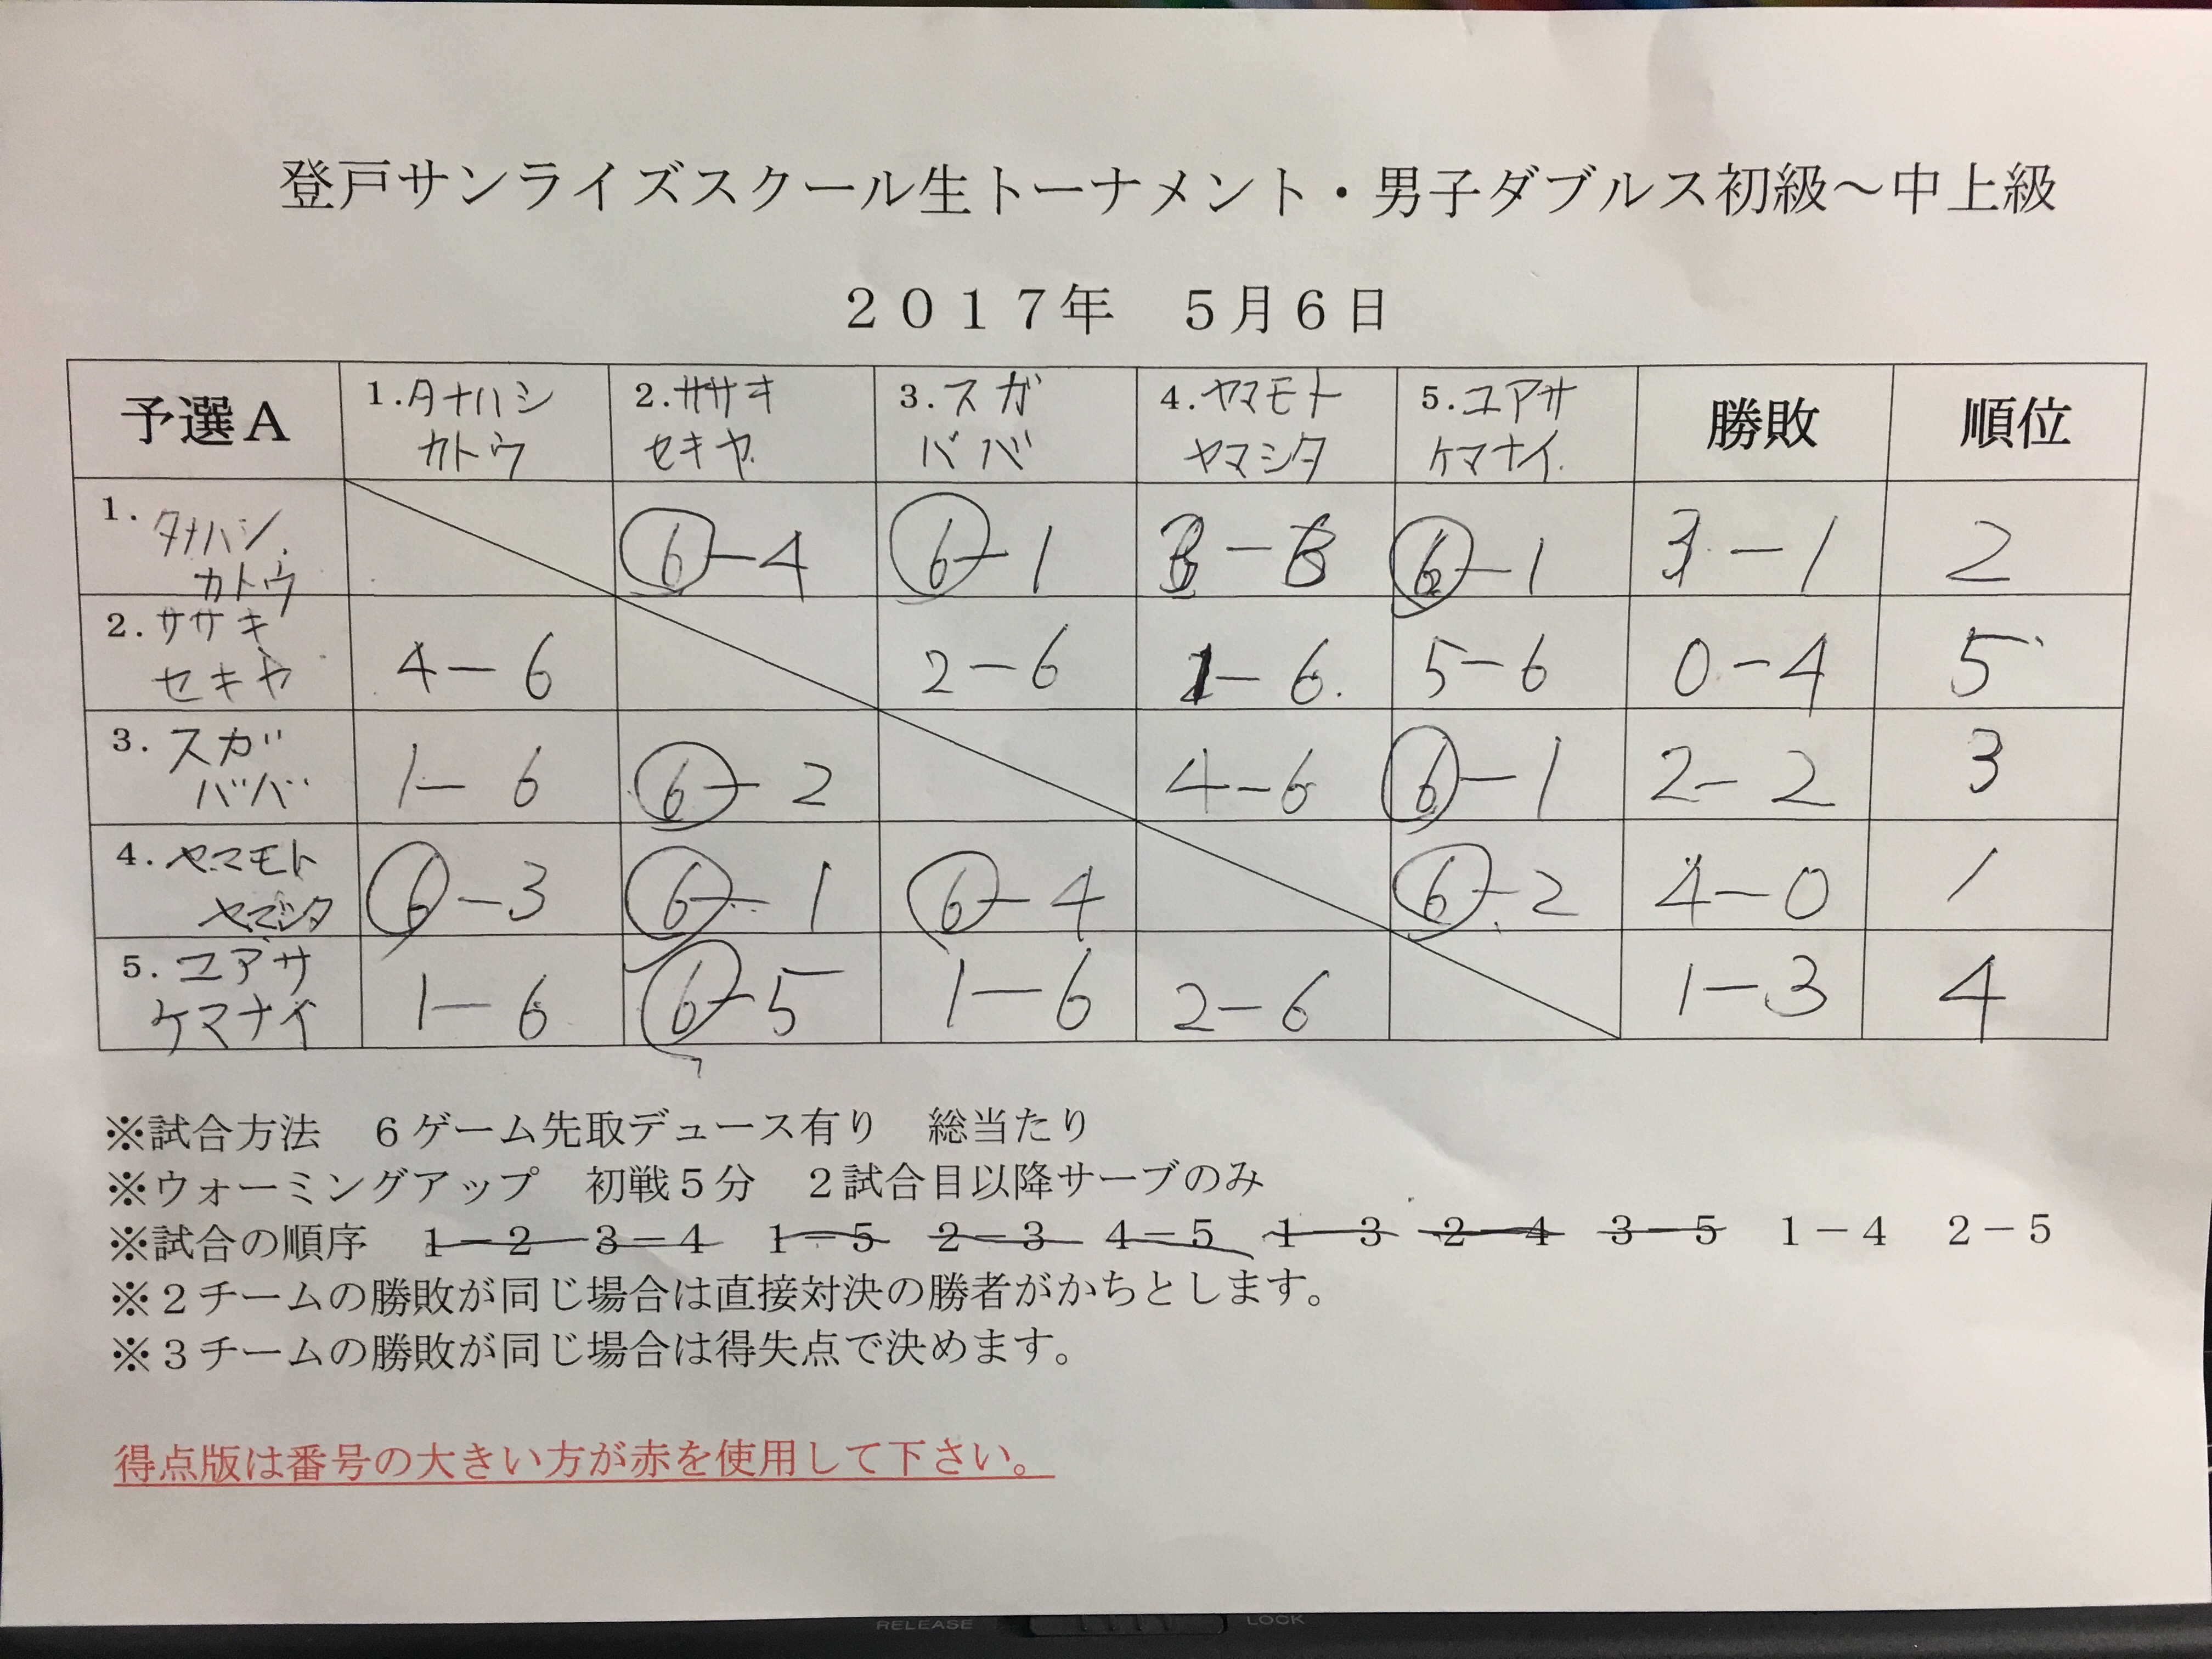 登戸サンライズスクール生トーナメント・男子ダブルス初級～中上級
２０１７年　５月６日
予選A 1.タナハシ カトウ 2.ササキ セキヤ 3.スガ ババ 4.ヤマモト ヤマシタ 5.ユアサ ケマナイ 勝敗 順位
1.タナハシ カトウ 6-4 6-1 3-6 6-1 3-1 2
2.ササキ セキヤ 4-6 2-6 1-6 5-6 0-4 5
3.スガ ババ 1-6 6-2 4-6 6-1 2-2 3
4.ヤマモト ヤマシタ 6-3 6-1 6-4 6-2 4-0 1
5.ユアサ ケマナイ 1-6 6-5 1-6 2-6 1-3 4
※試合方法　６ゲーム先取デュース有り　総当たり
※ウォーミングアップ　初戦５分　２試合目以降サーブのみ
※試合の順序　１－２　３－４　１－５　２－３　４－５　１－３　２－４　３－５　１－４　２－５
※２チームの勝敗が同じ場合は直接対決の勝者がかちとします。
※３チームの勝敗が同じ場合は得失点で決めます。
得点版は番号の大きい方が赤を使用して下さい。
RELEASE LOCK